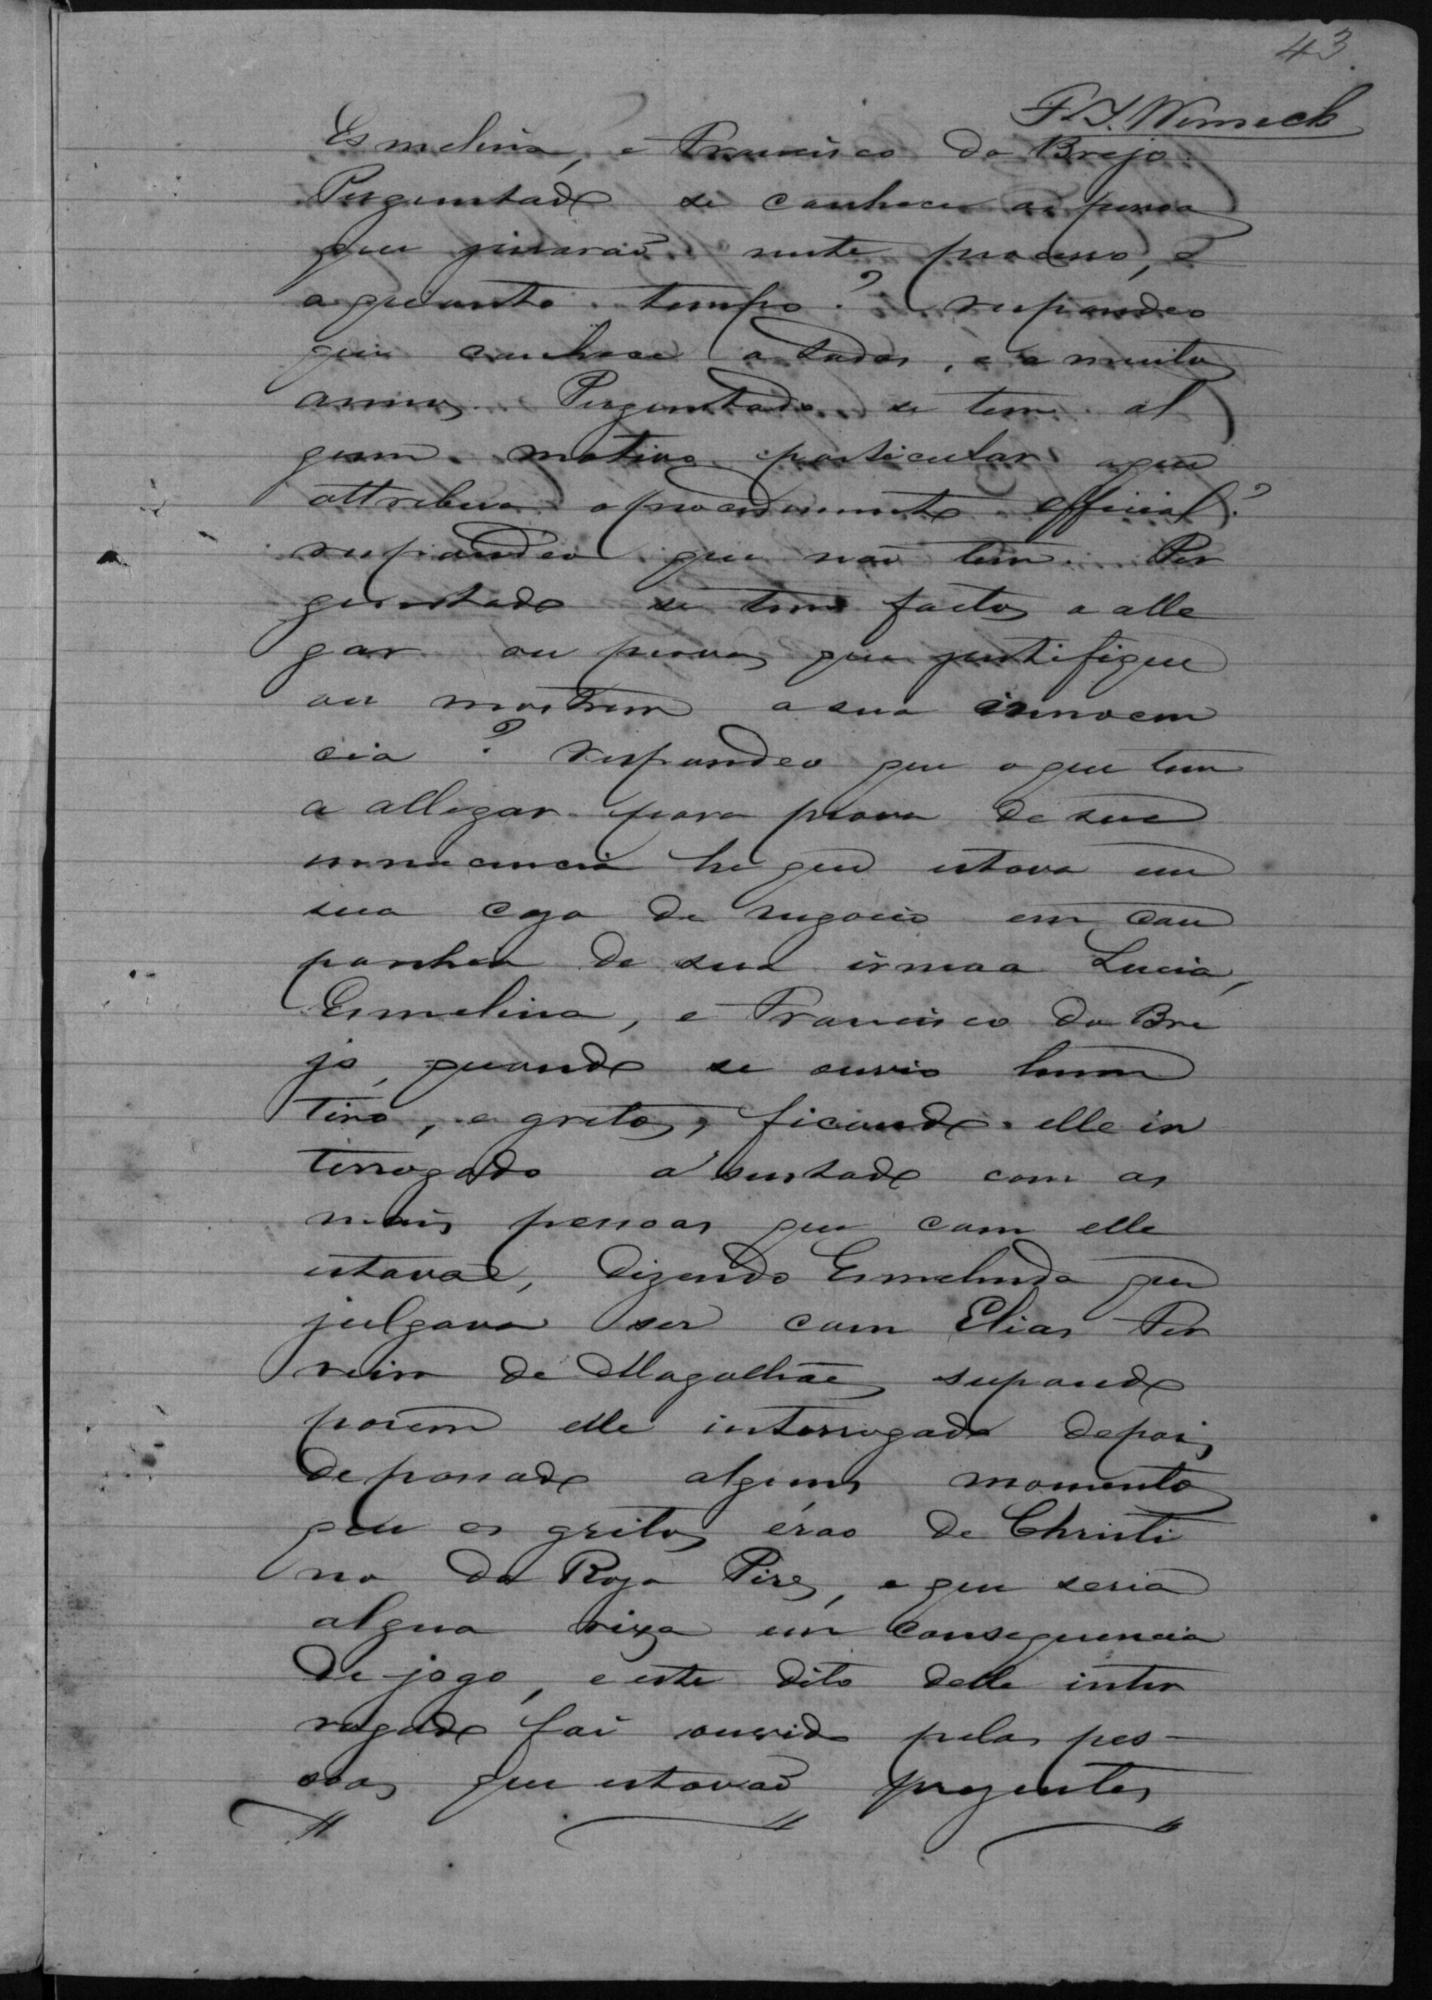 43
F. S. Werneck
Esmelina, e Francisco do Brejo.
Perguntado se conhece as pessoas
que juraraõ neste processo, e
a quanto tempo? respondeo
que conhece a todos, e a muitos
annos. Perguntado se tem al
gum motivo particular a que
attribua o procedimento official?
respondeo que naõ tem. Per
guntado se tem factos a alle
gar ou provas que justifique
ou mostrem a sua innocen
cia? respondeo que o que tem
a allegar para prova de sua
innocencia he que estava em
sua caza de negocio em com
panhia de sua irmaa Lucia,
Esmelina, e Francisco do Bre
jo, quando se ouvio hum
tiro, e gritos, ficando elle in
terrogado assentado com as
mais pessoas que com elle
estavaõ, dizendo Esmelinda que
julgava ser com Elias Fer
reira de Magalhães, supondo
porem elle interrogado depois
de passado alguns momentos
que os gritos érao de Christi
no da Roza Pires, e que seria
algua rixa em consequencia
de jogo, e este dito delle inter
rogado foi ouvido pelas pes-
soas que estavaõ prezentes